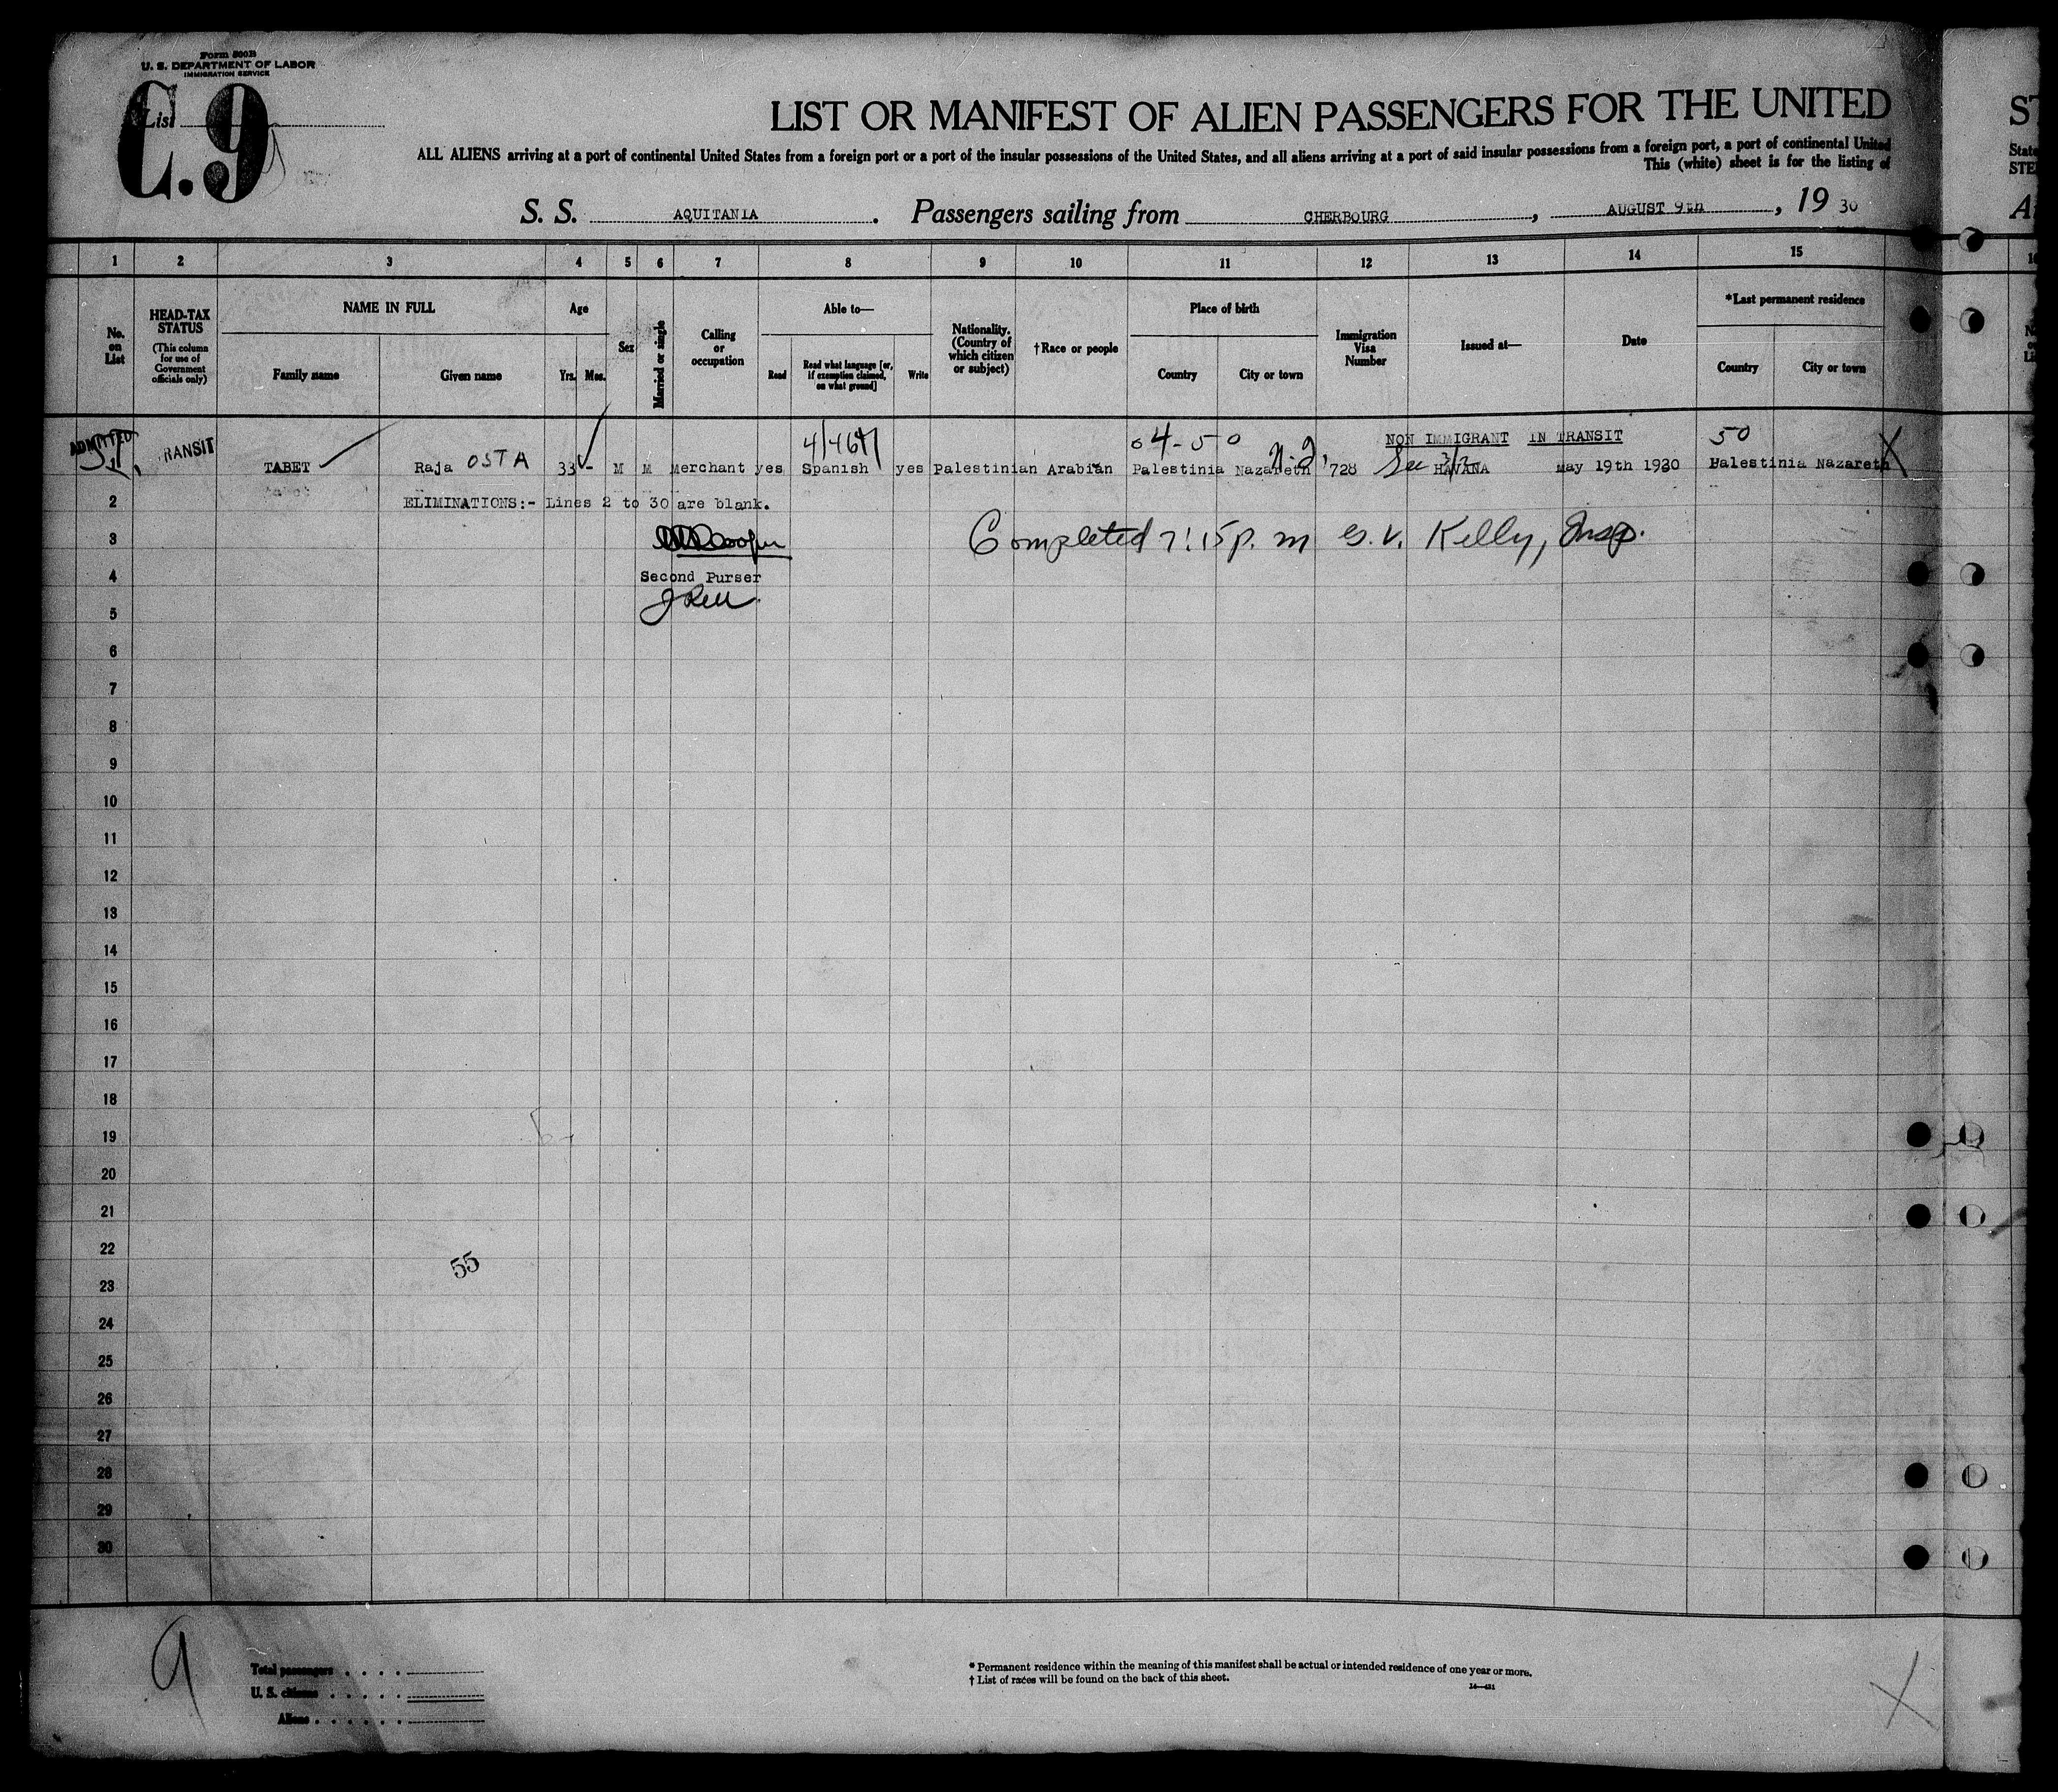 Form 500B
U. S. DEPARTMENT OF LABOR
IMMIGRATION SERVICE
List
C.9
LIST OR MANIFEST OF ALIEN PASSENGERS FOR THE UNITED
ALL ALIENS arriving at a port of continental United States from a foreign port or a port of the insular possessions of the United States, and all aliens arriving at a port of said insular possessions from a foreign port, a port of continental United
This (white) sheet is for the listing of
S. S. AQUITANIA. Passengers sailing from CHERBOURG, AUGUST 9th, 19 30
1 2 3 4 5 6 7 8 9 10 11 12 13 14 15
No. on List
HEAD-TAX STATUS
(This column for use of Government officials only)
NAME IN FULL
Family name
Given name
Age
Yrs. Mos.
Sex
Married or single
Calling or occupation
Able to—
Read
Read what language [or, if exemption claimed, on what ground]
Write
Nationality. (Country of which citizen or subject)
†Race or people
Place of birth
Country
City or town
Immigration Visa Number
Issued at—
Date
*Last permanent residence
Country
City or town
ADMITTED TRANSIT 04-50 NON IMMIGRANT IN TRANSIT 50
TABET Raja OSTA 33 M M Merchant yes Spanish yes Palestinian Arabian Palestinia Nazareth 728 See HAVANA May 19th 1930 Palestinia Nazareth X
2 ELIMINATIONS:- Lines 2 to 30 are blank.
3 Completed 7:15 p. m Kelly, Insp.
4 Second Purser
5
6
7
8
9
10
11
12
13
14
15
16
17
18
19
20
21
22
55
23
24
25
26
27
28
29
30
9
Total passengers
U. S. citizens
Aliens
* Permanent residence within the meaning of this manifest shall be actual or intended residence of one year or more.
† List of races will be found on the back of this sheet.
X